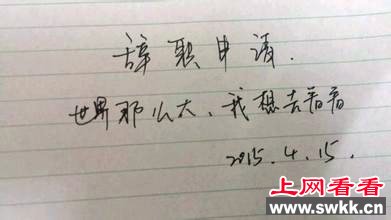 辞职申请.
世界那么大、我想去看看
2015.4.15.
上网看看
www.swkk.cn